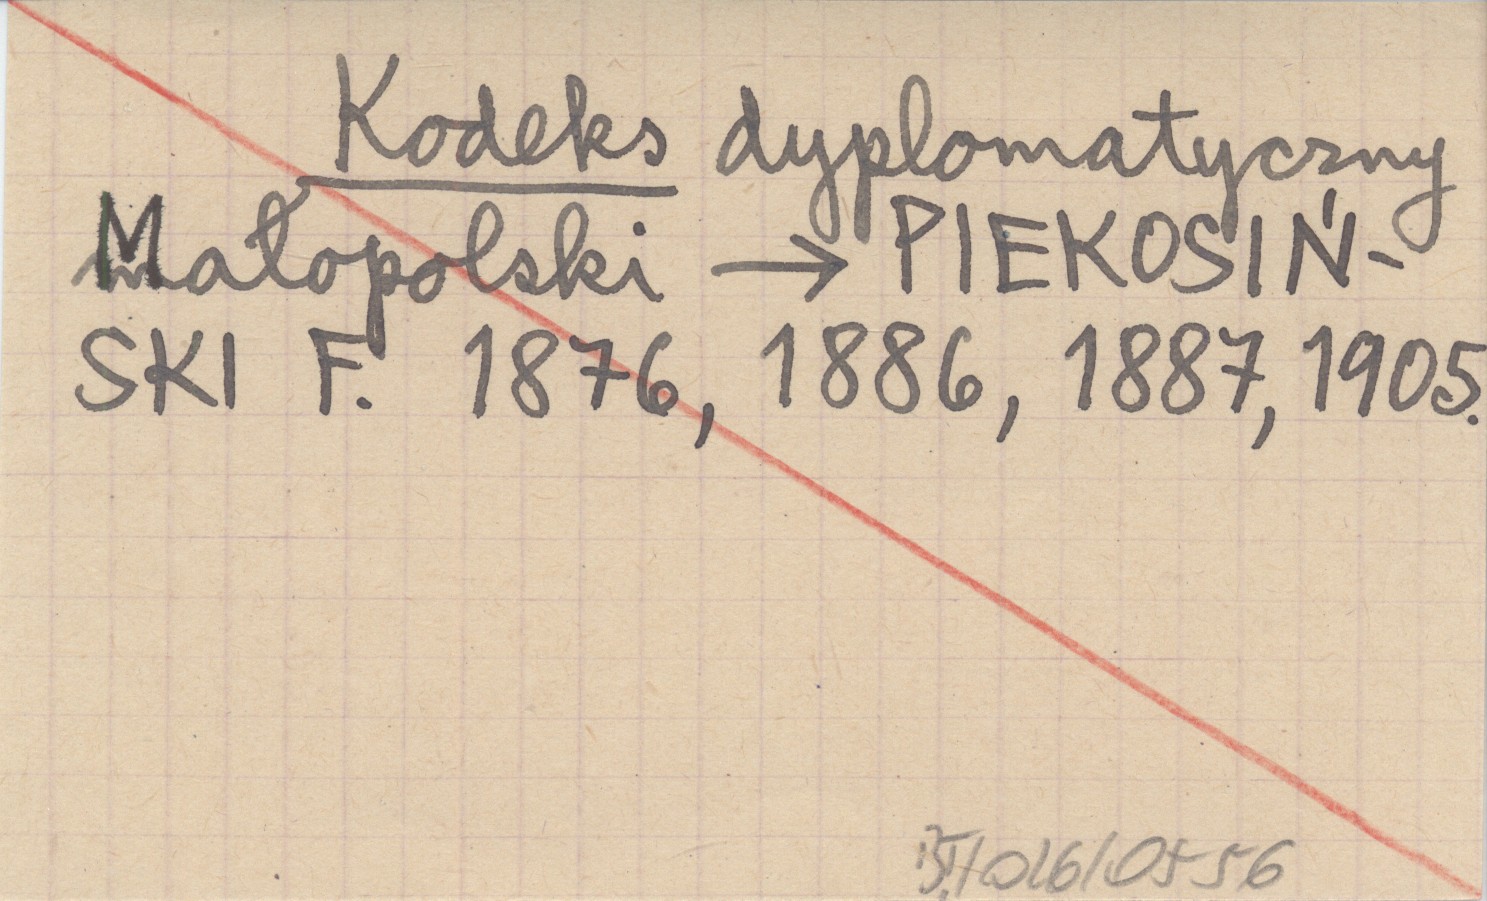 Kodeks dyplomatyczny
Małopolski → PIEKOSIŃ-
SKI F. 1876, 1886, 1887, 1905.